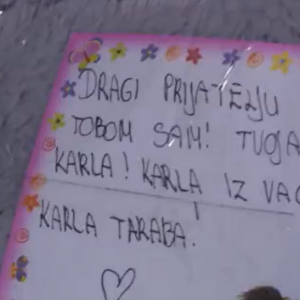 DRAGI PRIJATELJU
TOBOM SAM! TVOJA
KARLA! KARLA IZ
KARLA TARABA.